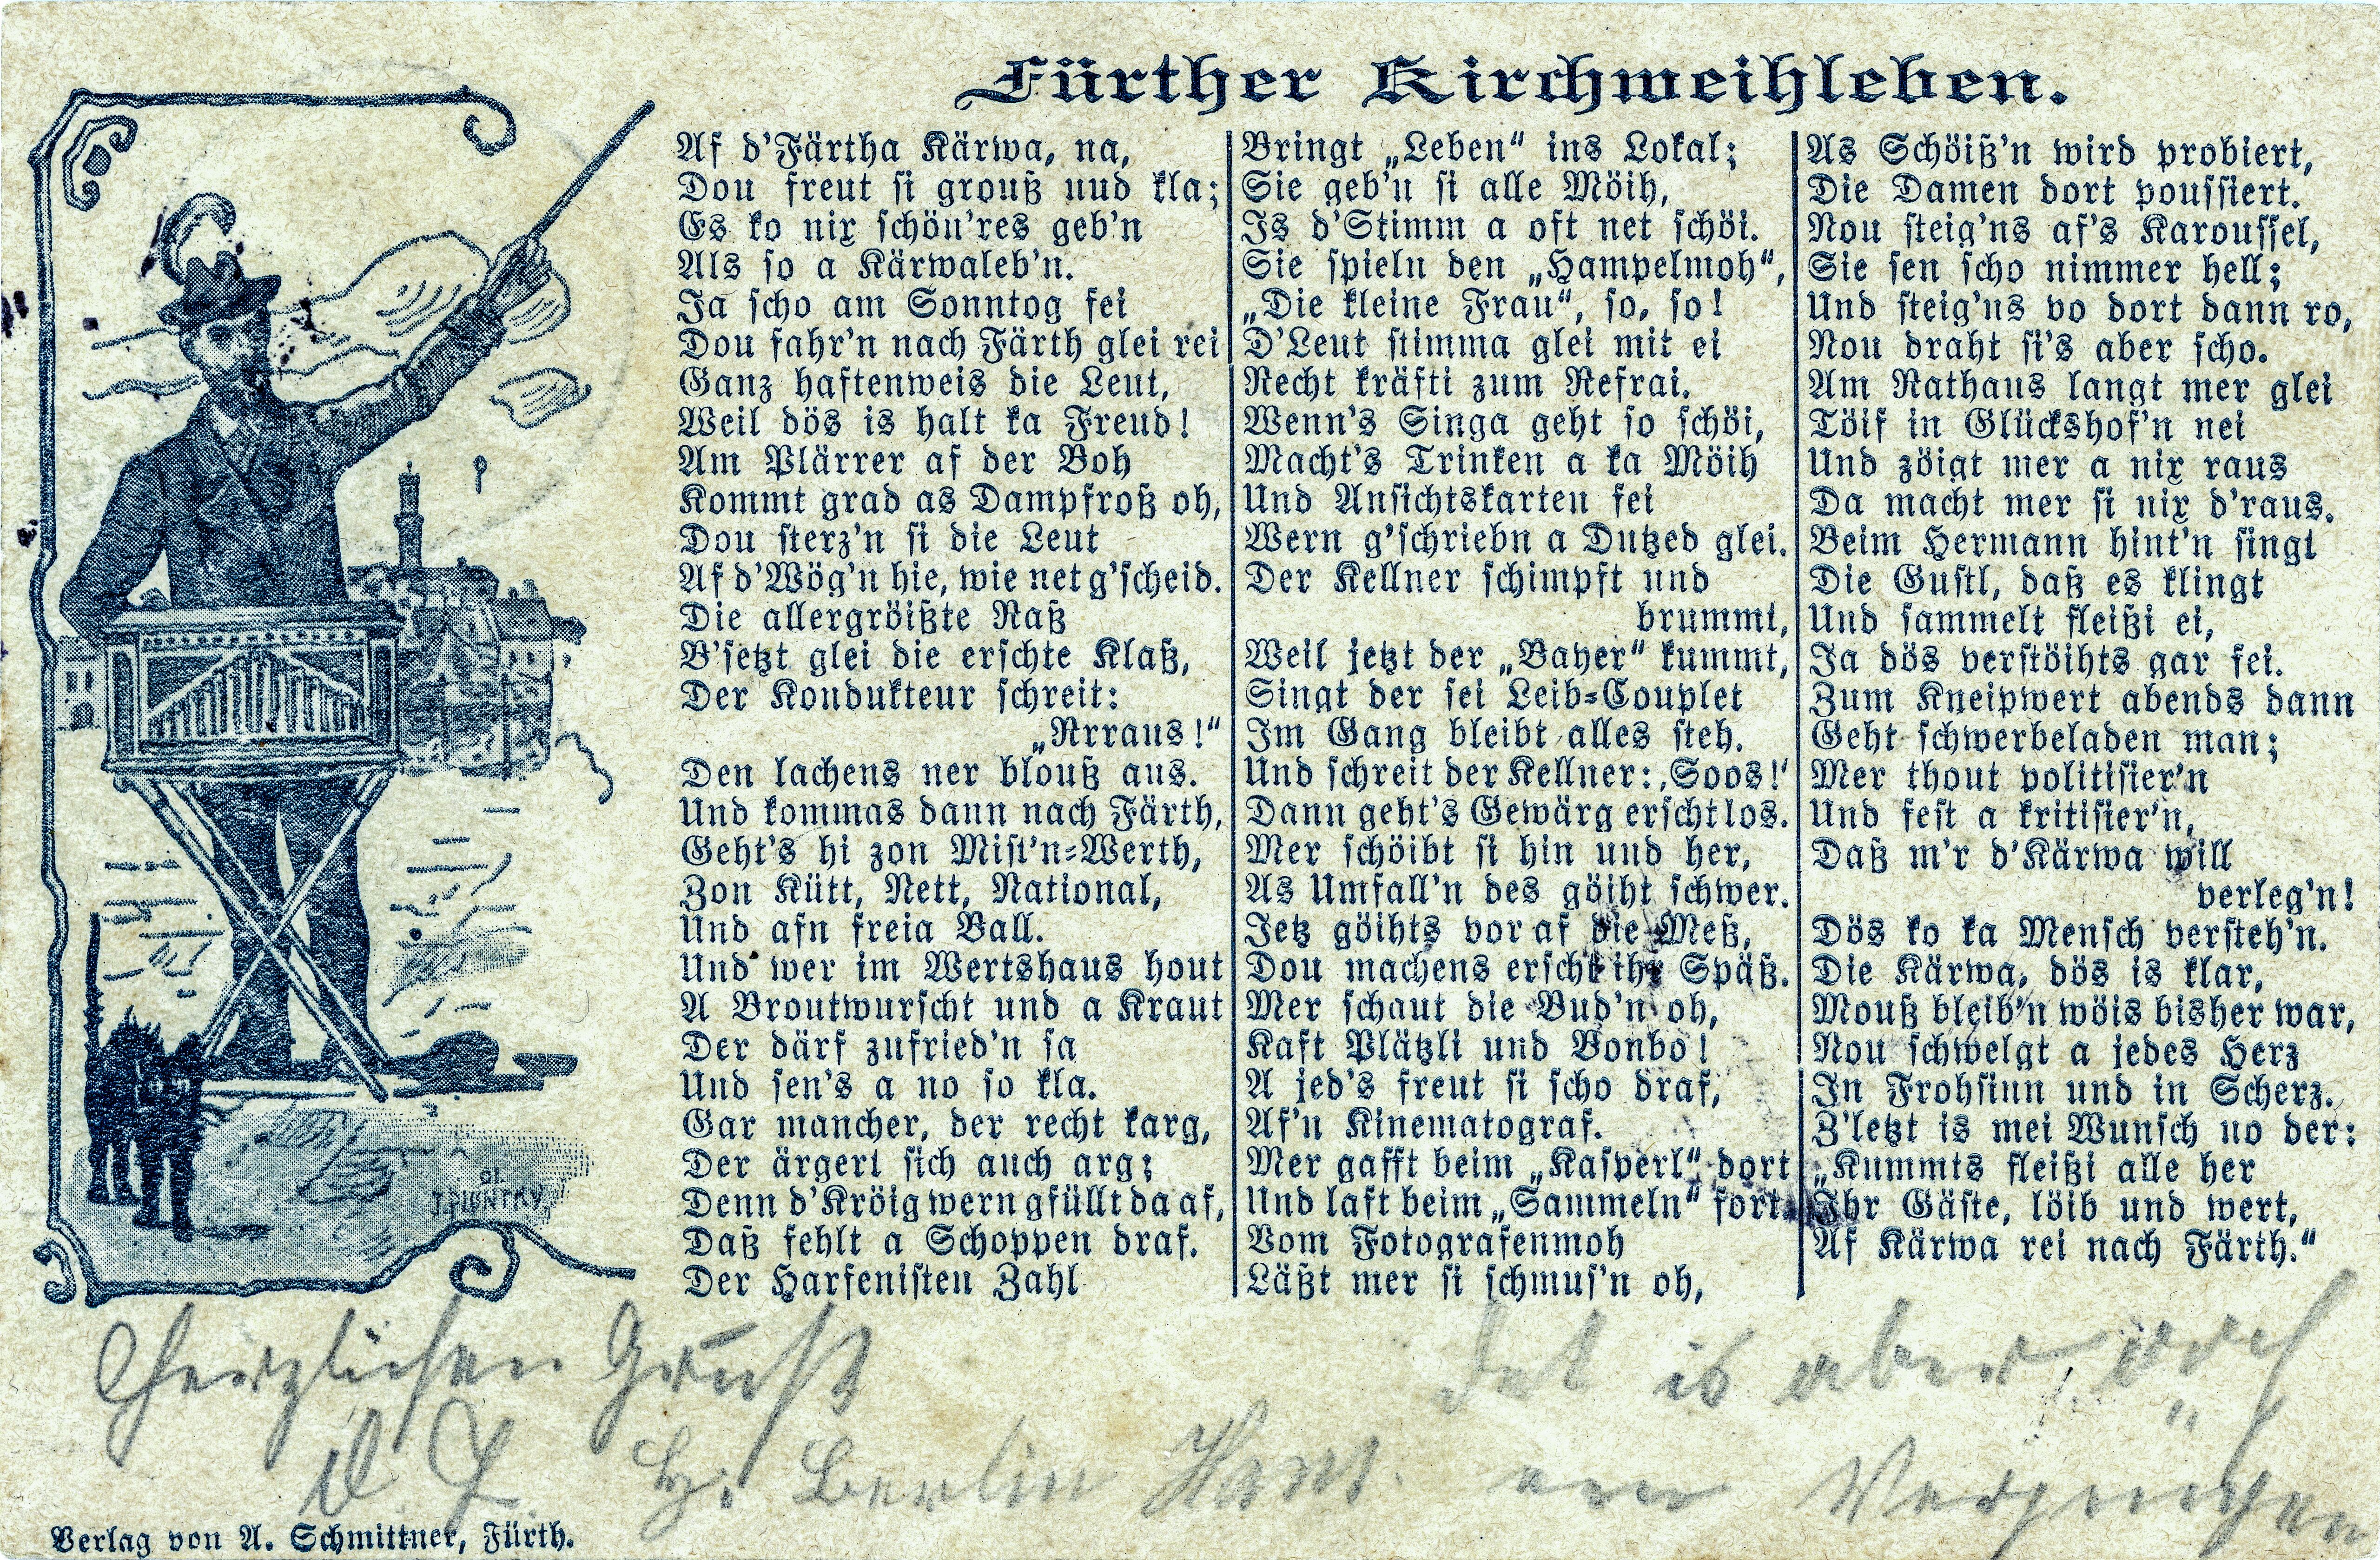 Fürther Kirchweihleben.
Af d'Färtha Kärwa, na,
Dou freut si grouß uud kla;
Es ko nix schön'res geb'n
Als so a Kärwaleb'n.
Ja scho am Sonntog fei
Dou fahr'n nach Färth glei rei
Ganz haftenweis die Leut,
Weil dös is halt ka Freud!
Am Plärrer af der Boh
Kommt grad as Dampfroß oh,
Dou sterz'n si die Leut
Af d'Wög'n hie, wie net g'scheid.
Die allergröißte Raß
B'setzt glei die erschte Klaß,
Der Kondukteur schreit:
„Rrraus!“
Den lachens ner blouß aus.
Und kommas dann nach Färth,
Geht's hi zon Mist'n-Werth,
Zon Kütt, Nett, National,
Und afn freia Ball.
Und wer im Wertshaus hout
A Broutwurscht und a Kraut
Der därf zufried'n sa
Und sen's a no so kla.
Gar mancher, der recht karg,
Der ärgert sich auch arg;
Denn d'Kröig wern gfüllt da af,
Daß fehlt a Schoppen draf.
Der Harfenisten Zahl
Bringt „Leben“ ins Lokal;
Sie geb'n si alle Möih,
Is d'Stimm a oft net schöi.
Sie spieln den „Hampelmoh“,
„Die kleine Frau“, so, so!
D'Leut stimma glei mit ei
Recht kräfti zum Refrai.
Wenn's Singa geht so schöi,
Macht's Trinken a ka Möih
Und Ansichtskarten fei
Wern g'schriebn a Dutzed glei.
Der Kellner schimpft und
brummt,
Weil jetzt der „Bayer“ kummt,
Singt der sei Leib-Couplet
Im Gang bleibt alles steh.
Und schreit der Kellner: ‚Soos!‘
Dann geht's Gewärg erscht los.
Mer schöibt si hin und her,
As Umfall'n des göiht schwer.
Jetz göihts vor af die Meß,
Dou machens erscht ihr Späß.
Mer schaut die Bud'n oh,
Kaft Plätzli und Bonbo!
A jed's freut si scho draf,
Af'n Kinematograf.
Mer gafft beim „Kasperl“ dort
Und laft beim „Sammeln“ fort.
Vom Fotografenmoh
Läßt mer si schmus'n oh,
As Schöiß'n wird probiert,
Die Damen dort poussiert.
Nou steig'ns af's Karoussel,
Sie sen scho nimmer hell;
Und steig'ns vo dort dann ro,
Nou draht si's aber scho.
Am Rathaus langt mer glei
Töif in Glückshof'n nei
Und zöigt mer a nix raus
Da macht mer si nix d'raus.
Beim Hermann hint'n singt
Die Gustl, daß es klingt
Und sammelt fleißi ei,
Ja dös verstöihts gar fei.
Zum Kneipwert abends dann
Geht schwerbeladen man;
Mer thout politisier'n
Und fest a kritisier'n,
Daß m'r d'Kärwa will
verleg'n!
Dös ko ka Mensch versteh'n.
Die Kärwa, dös is klar,
Mouß bleib'n wöis bisher war,
Nou schwelgt a jedes Herz
In Frohsinn und in Scherz.
Z'letzt is mei Wunsch no der:
„Kummts fleißi alle her
Ihr Gäste, löib und wert,
Af Kärwa rei nach Färth.“
Herzlichen Gruß
Det is aber
Berlin Hans. Vergnügen
Verlag von A. Schmittner, Fürth.